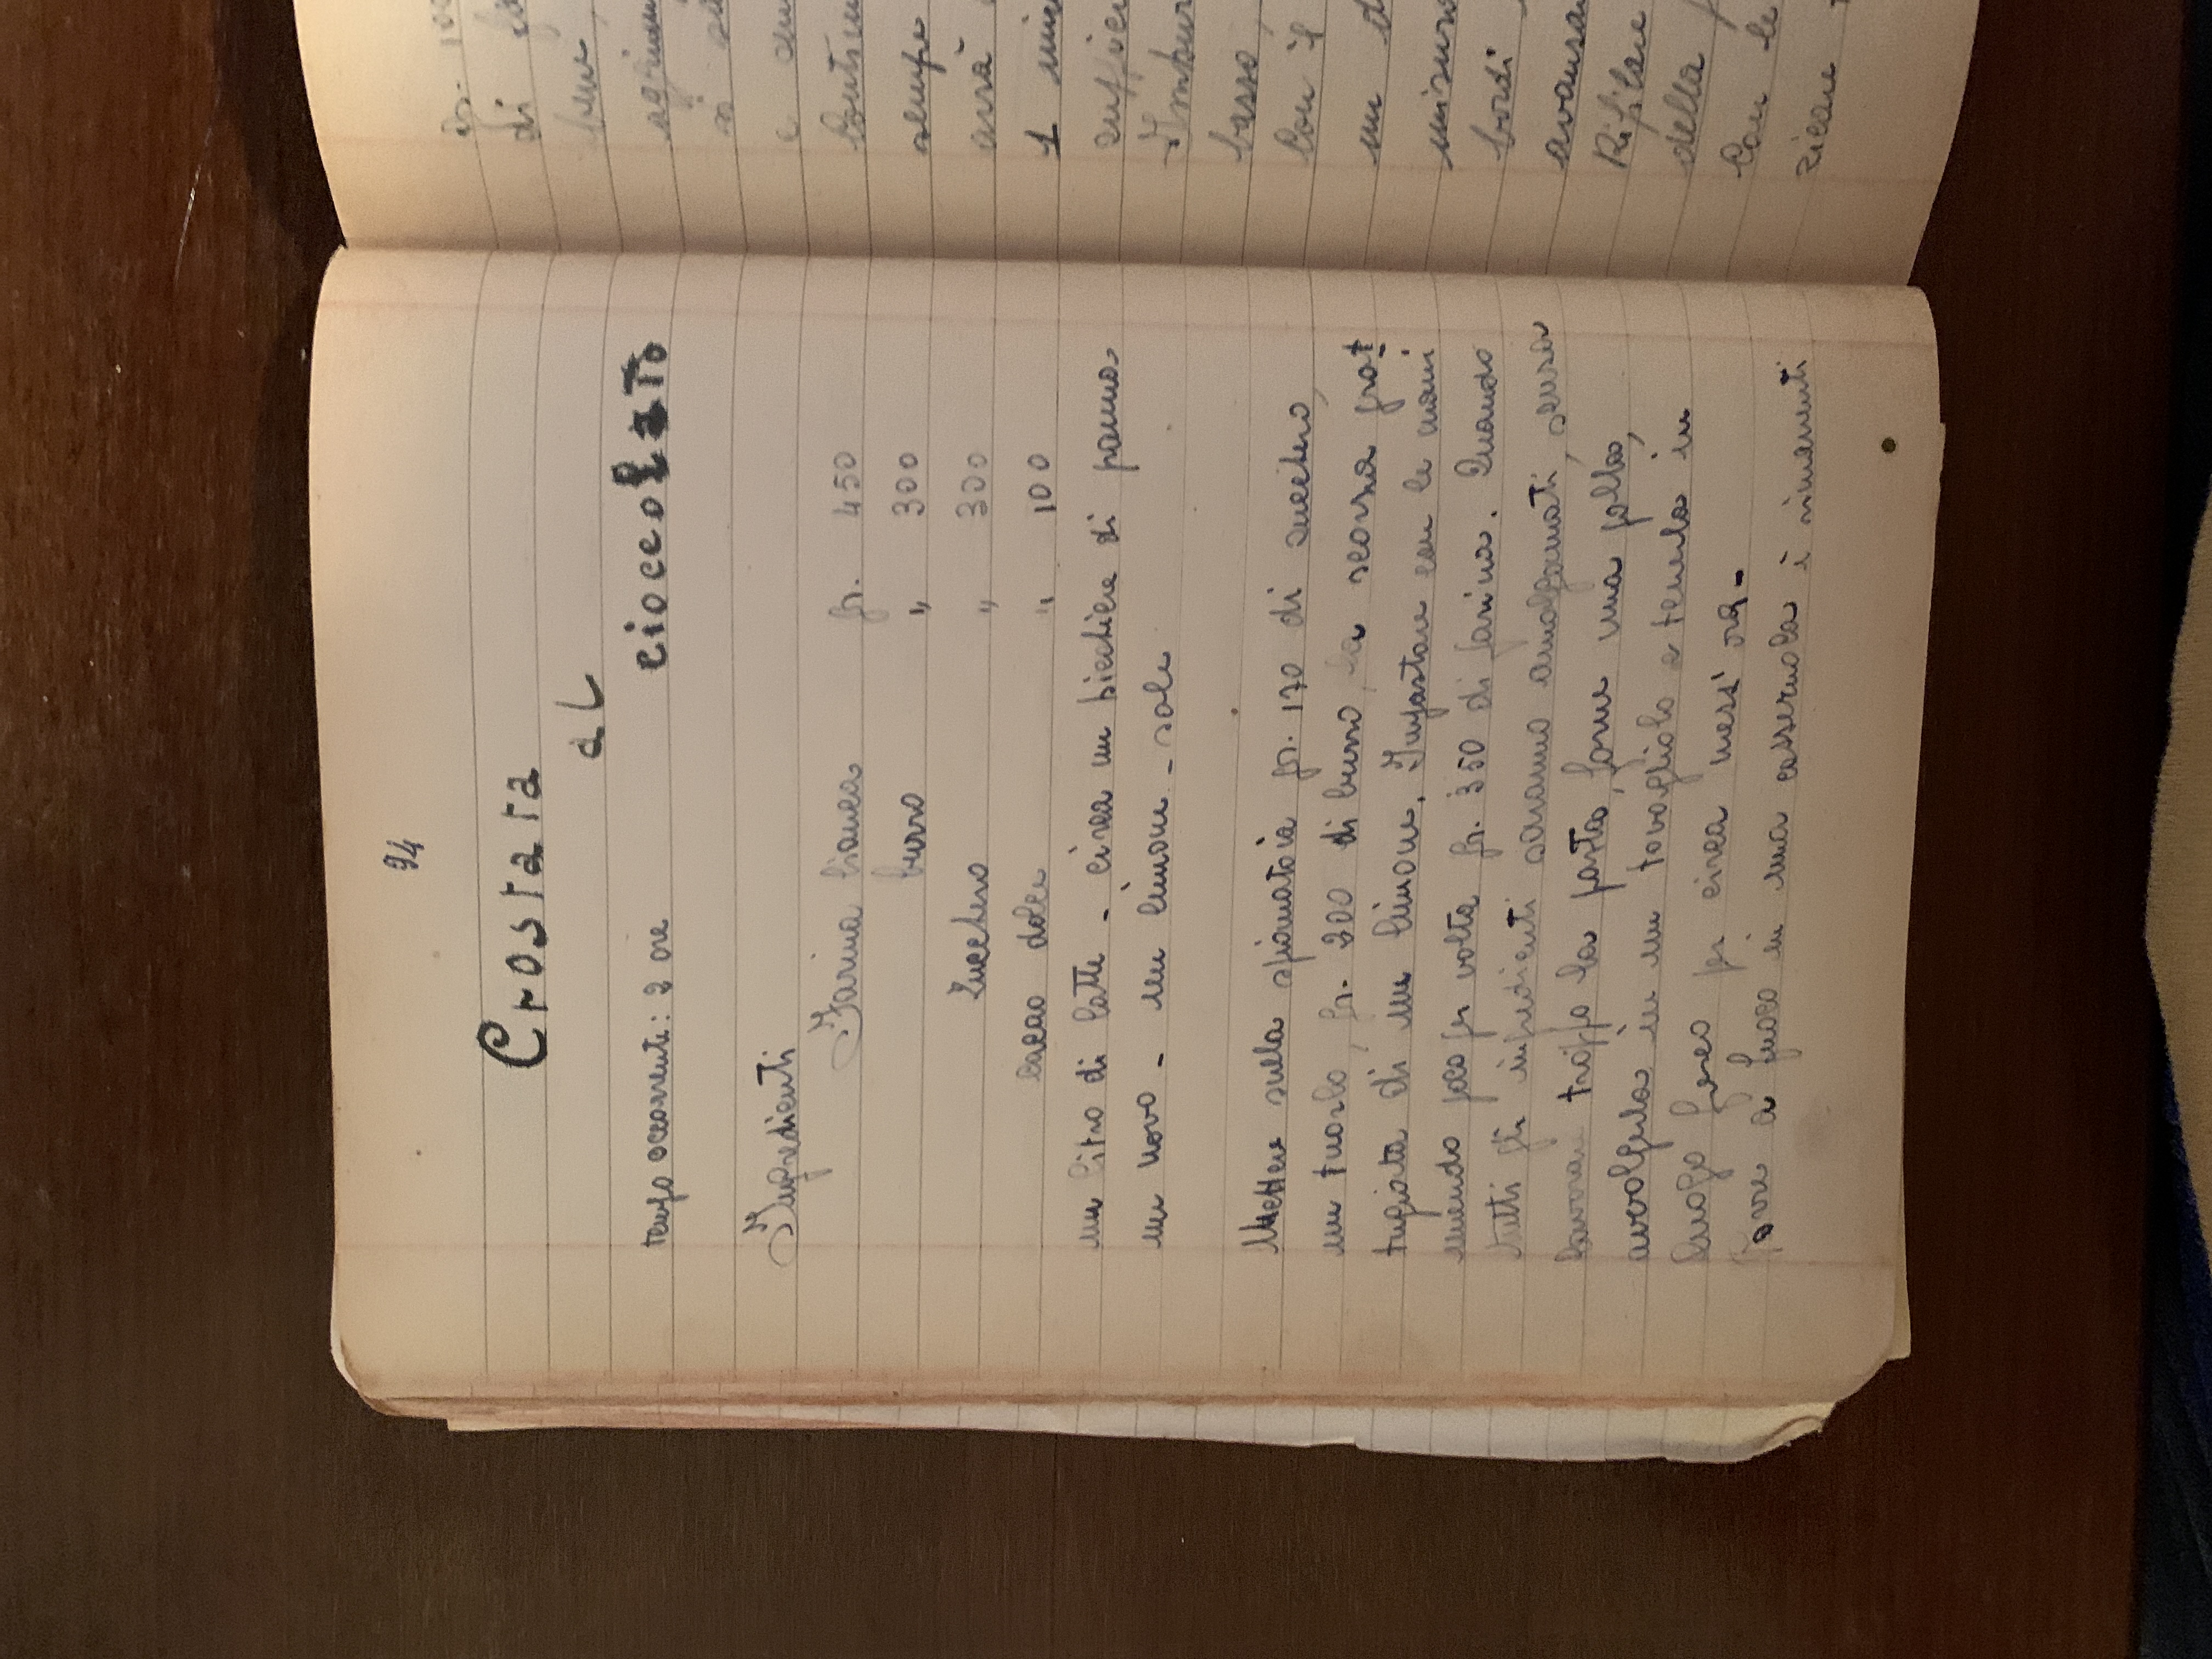 94
Crostata
al
cioccolato
tempo occorrente: 2 ore
Ingredienti
Farina bianca gr. 450
burro " 300
Zucchero " 300
cacao dolce " 100
un litro di latte - circa un bicchiere di panna
un uovo - un limone - sale
Mettere sulla spianatoia gr. 170 di zucchero,
un tuorlo, gr. 200 di burro, la scorza grat
tugiata di un limone. Impastare con le mani
unendo poco per volta gr. 350 di farina. Quando
tutti gli ingredienti saranno amalgamati, senza
lavorare troppo la pasta, farne una palla,
avvolgerla in un tovagliolo e tenerla in
luogo fresco per circa mezz'ora-
Porre a fuoco in una casseruola i rimanenti
gr. 100
di
bene,
si
e
sempre
avrà
1
basso,
Con il
un
bordi
Rifilare
della
Con le